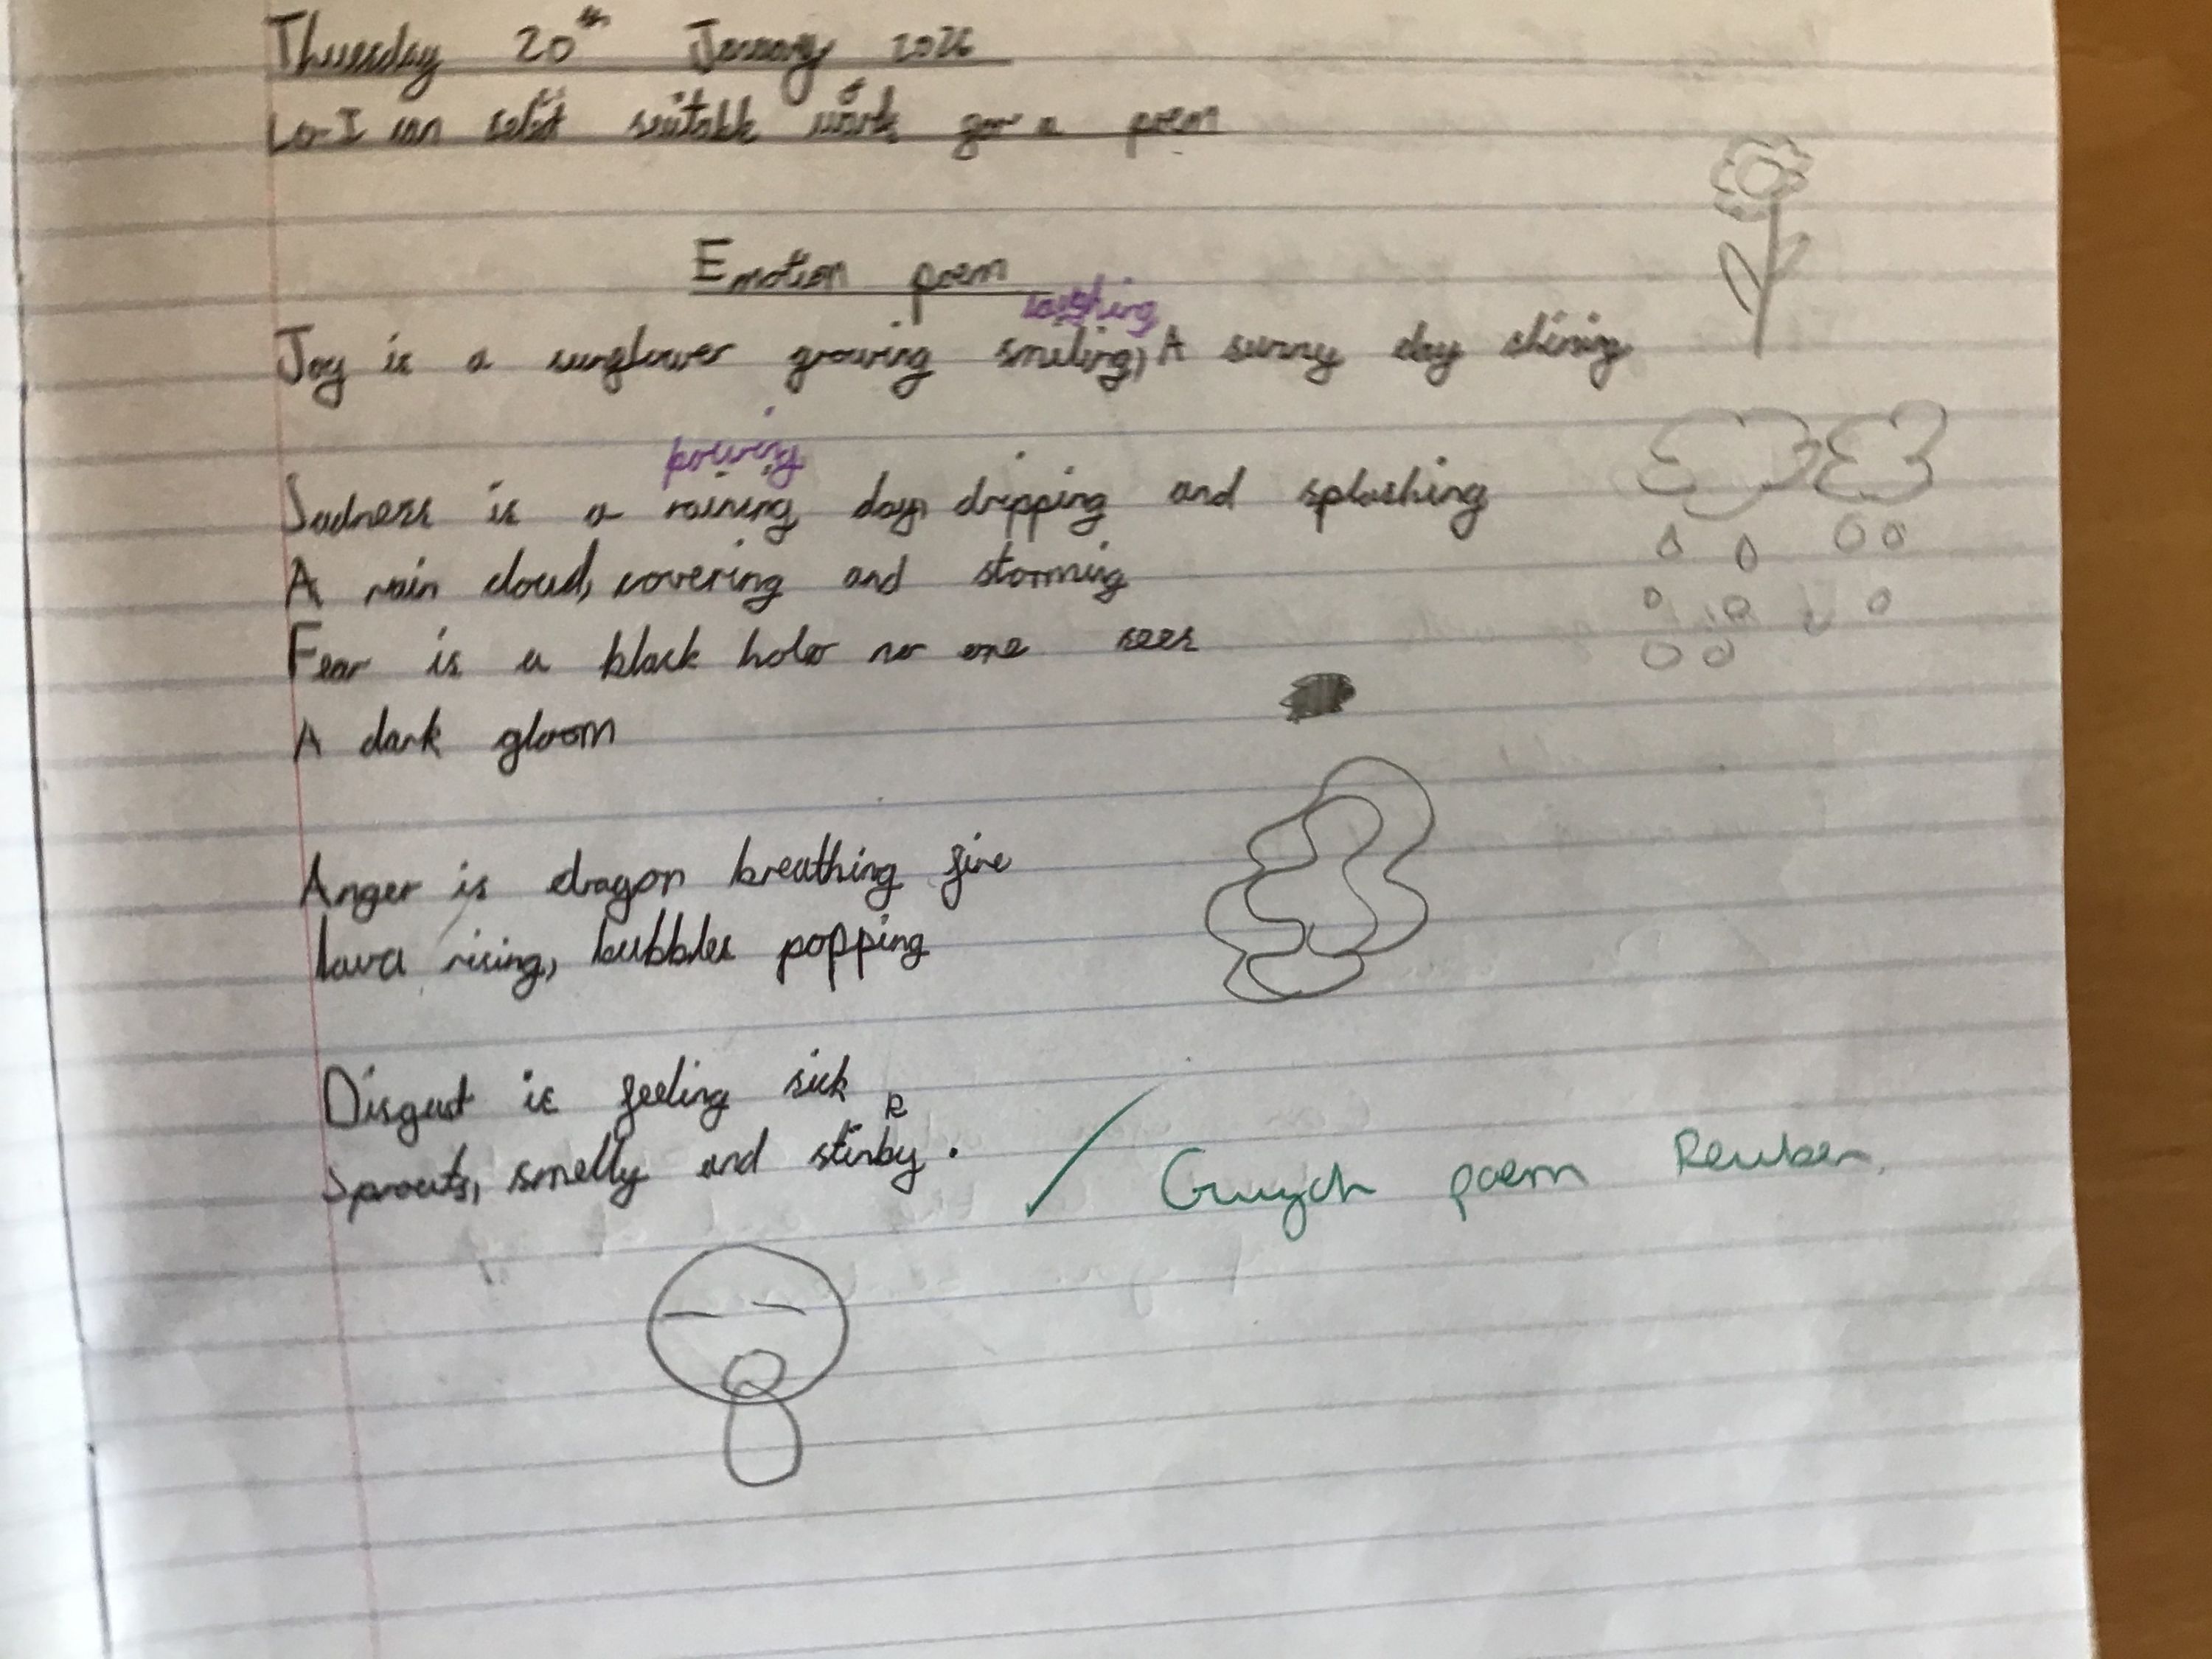 Thuesday 20th January 2026
Lo-I can select suitable work for a poem
Emotion poem
laughing
Joy is a sunflower growing smiling, A sunny day shining
pouring
Sadness is a raining day, dripping and splashing
A rain cloud, covering and storming
Fear is a black hole no one sees
A dark gloom
Anger is dragon breathing fire
lava rising, bubbles popping
Disgust is feeling sick
k
Sprouts, smelly and stinby.
poem Reuben.